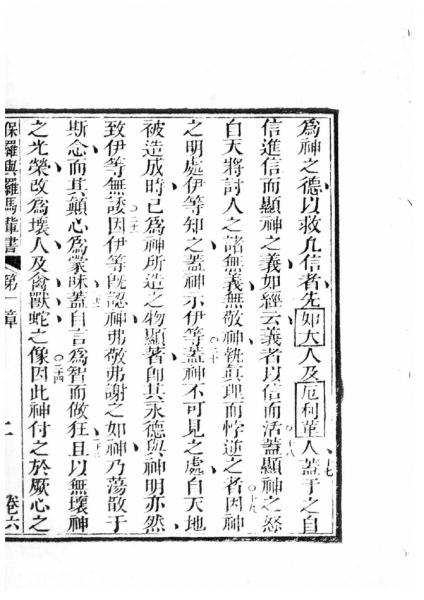 爲神之德以救凡信者先如大人及厄利革人○十七蓋于之自
信進信而顯神之義如經云義者以信而活○十八蓋顯神之怒
自天將討人之諸無義無敬神執眞理而悖逆之者○十九因神
之明處伊等知之蓋神示伊等○二十蓋神不可見之處自天地
被造成時已爲神所造之物顯著卽其永德與神明亦然
致伊等無諉○二十一因伊等旣認神弗敬弗謝之如神乃蕩散于
斯念而其顛心爲蒙昧○二十二蓋自言爲智而做狂○二十三且以無壞神
之光榮改爲壞人及禽獸蛇之像○二十四因此神付之於厥心之
保羅與羅馬輩書 第一章 二 卷六